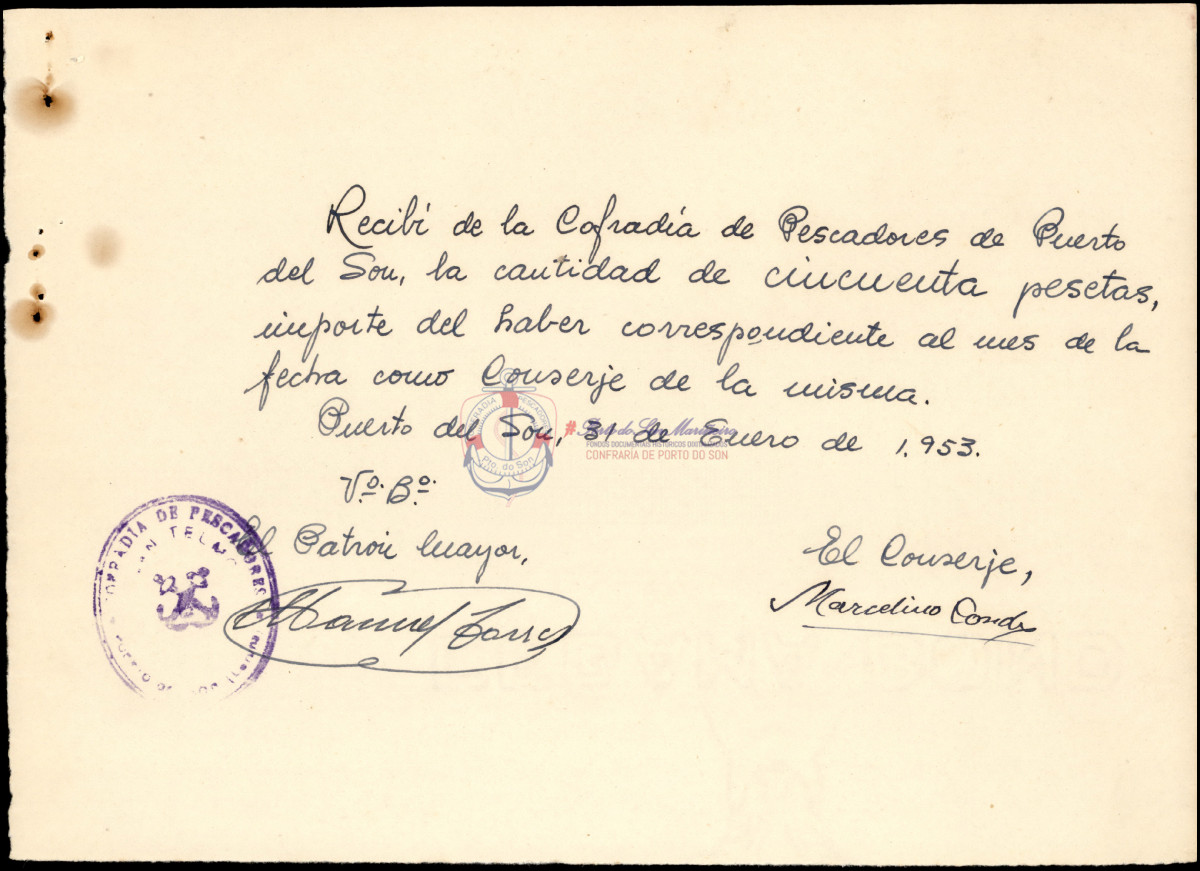 Recibí de la Cofradía de Pescadores de Puerto
del Son, la cantidad de cincuenta pesetas,
importe del haber correspondiente al mes de la
fecha como Conserje de la misma.
Puerto del Son, 31 de Enero de 1.953.
Vº. Bº.
El Patron Mayor,
Manuel Torres
El Conserje,
Marcelino Conde
COFRADÍA DE PESCADORES
SAN TELMO
Pto. do Son
FONDOS DOCUMENTAIS HISTÓRICOS DIXITALIZADOS
CONFRARÍA DE PORTO DO SON